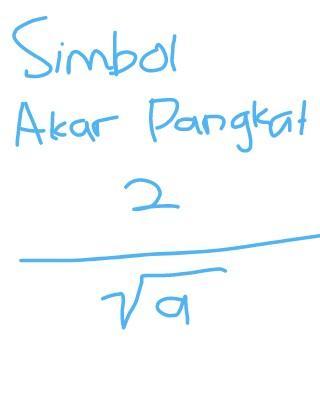 Simbol
Akar Pangkat
2
√a